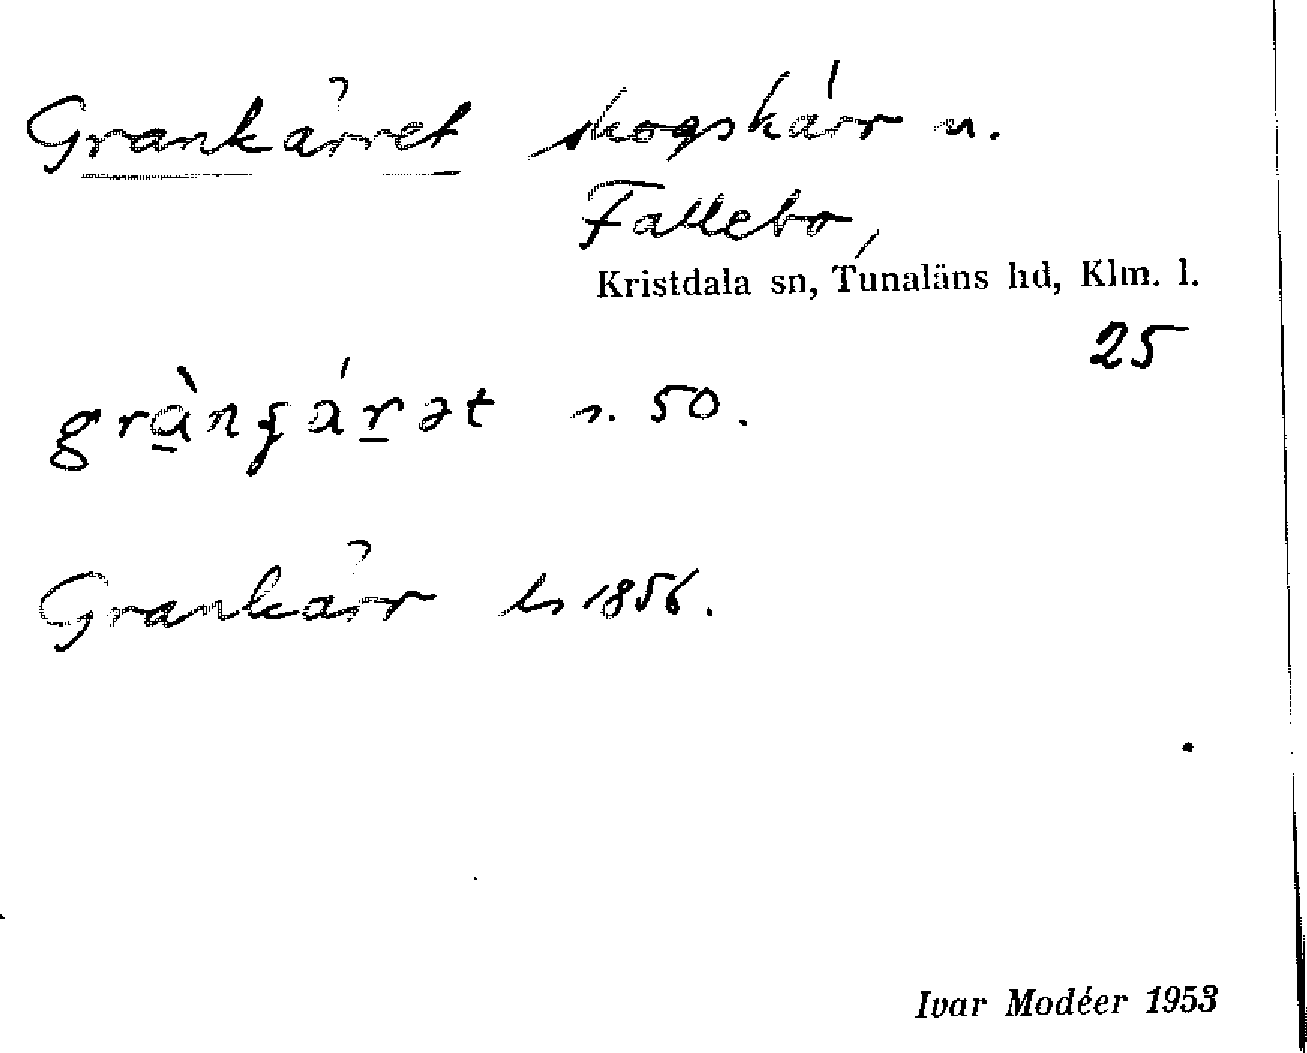 Grankärret skogskärr n.
Fallebo,
Kristdala sn, Tunaläns hd, Klm. l.
25
s. 50.
Grankärr ls 1856.
Ivar Modéer 1953